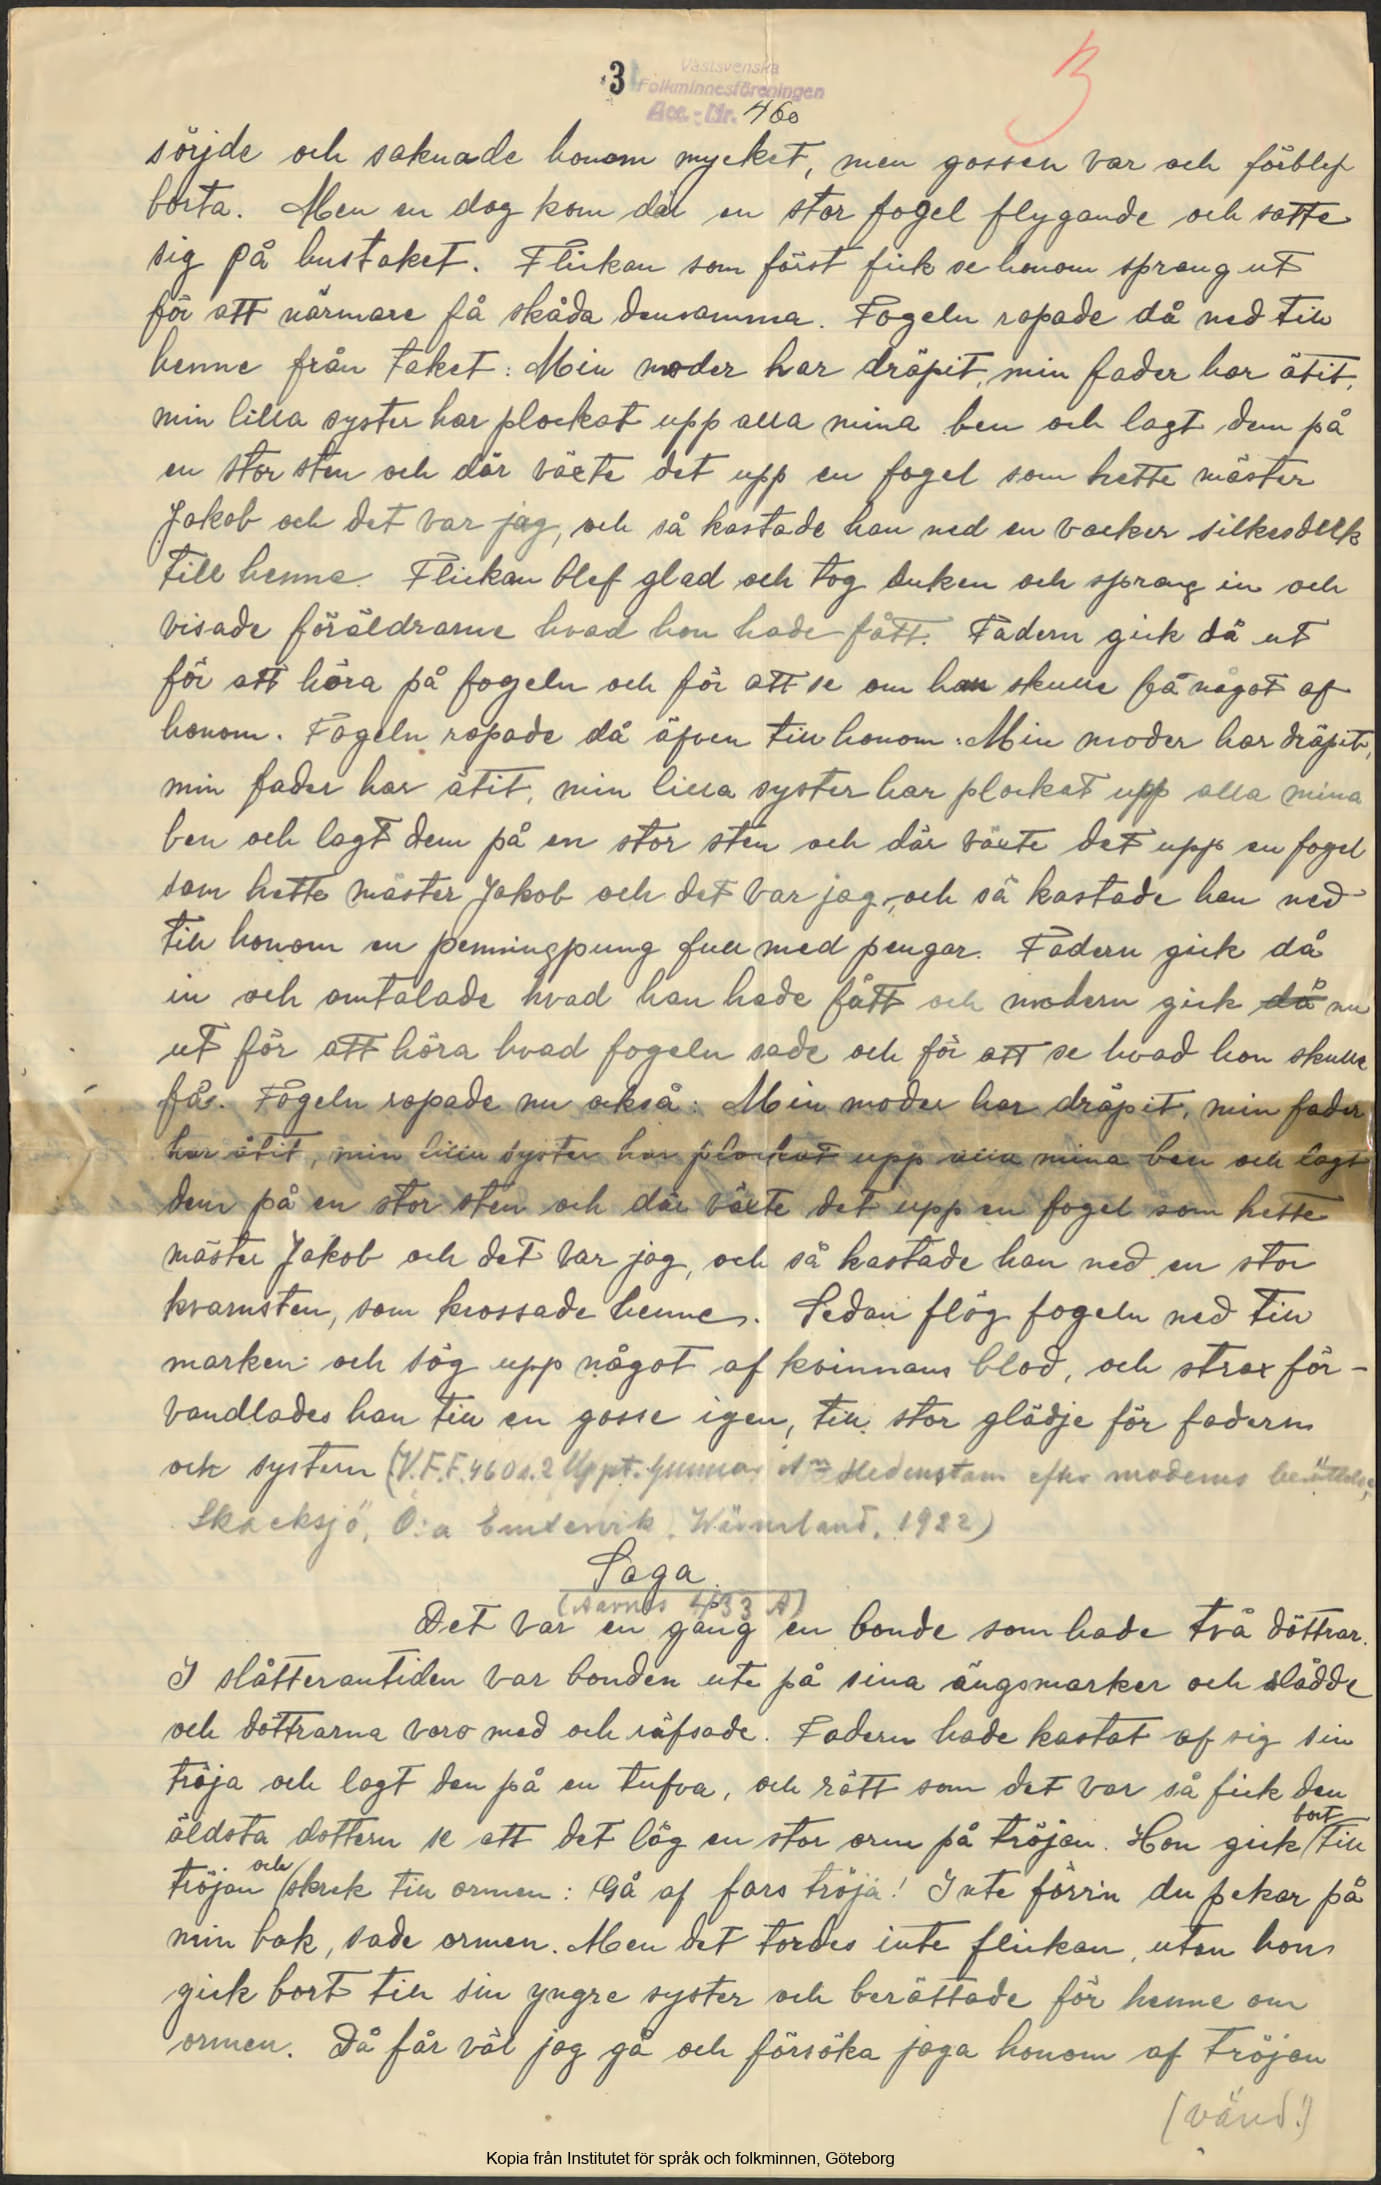 3
Västsvenska
Folkminnesföreningen
Acc.-Nr. 460
3
sörjde och saknade honom mycket, men gossen var och förblef
borta. Men en dag kom där en stor fogel flygande och satte
sig på hustaket. Flickan som först fick se honom sprang ut
för att närmare få skåda densamma. Fogeln ropade då ned till
henne från taket: Min moder har dräpit, min fader har ätit,
min lilla syster har plockat upp alla mina ben och lagt dem på
en stor sten och där växte det upp en fogel som hette mäster
Jakob och det var jag, och så kastade han ned en vacker silkesduk
till henne. Flickan blef glad och tog duken och sprang in och
visade föräldrarne hvad hon hade fått. Fadern gick då ut
för att höra på fogeln och för att se om han skulle få något af
honom. Fogeln ropade då äfven till honom: Min moder har dräpit,
min fader har ätit, min lilla syster har plockat upp alla mina
ben och lagt dem på en stor sten och där växte det upp en fogel
som hette mäster Jakob och det var jag, och så kastade han ned
till honom en penningpung full med pengar. Fadern gick då
in och omtalade hvad han hade fått och modern gick då nu
ut för att höra hvad fogeln sade och för att se hvad hon skulle
få. Fogeln ropade nu också: Min moder har dräpit, min fader
har ätit, min lilla syster har plockat upp alla mina ben och lagt
dem på en stor sten och där växte det upp en fogel som hette
mäster Jakob och det var jag, och så kastade han ned en stor
kvarnsten, som krossade henne. Sedan flög fogeln ned till
marken och sög upp något af kvinnans blod, och strax för-
vandlades han till en gosse igen, till stor glädje för fadern
och systern (V.F.F. 460 s. 2 Uppt. Gunnar Hedenstam efter moderns berättelse,
Skacksjö, Ö:a Emtervik, Wärmland, 1922)
Saga.
(Aarnes 433 A)
Det var en gång en bonde som hade två döttrar.
I slåtterantiden var bonden ute på sina ängsmarker och slådde
och döttrarna voro med och räfsade. Fadern hade kastat af sig sin
tröja och lagt den på en tufva, och rätt som det var så fick den
äldsta dottern se att det låg en stor orm på tröjan. Hon gick bort till
tröjan och skrek till ormen: Gå af fars tröja! Inte förrin du pekar på
min bak, sade ormen. Men det tordes inte flickan, utan hon
gick bort till sin yngre syster och berättade för henne om
ormen. Då får väl jag gå och försöka jaga honom af tröjan
(vänd!)
Kopia från Institutet för språk och folkminnen, Göteborg